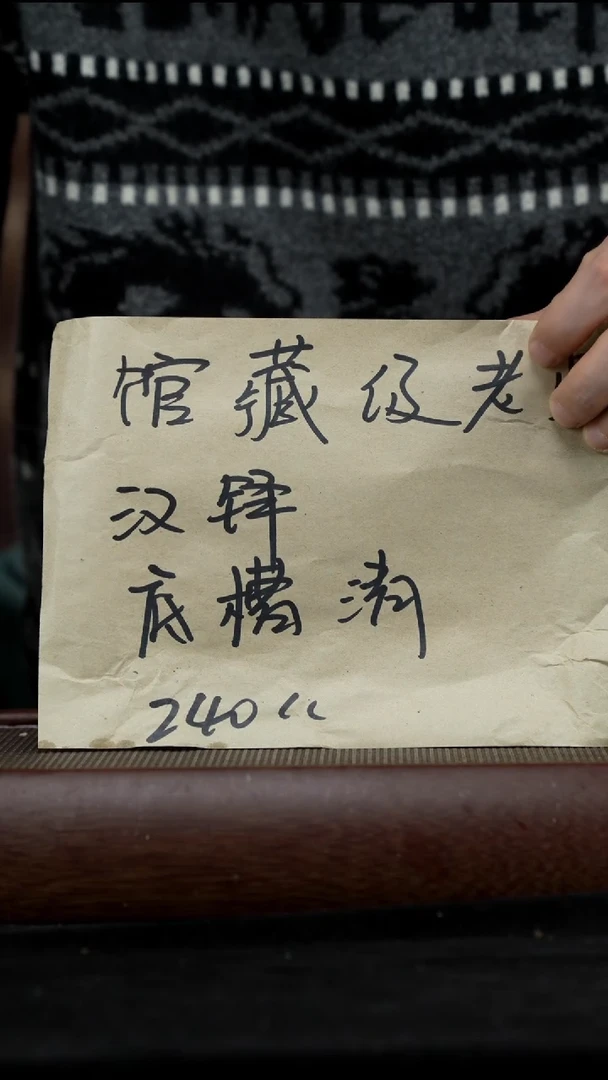 馆藏级老
汉铎
底槽清
240cc